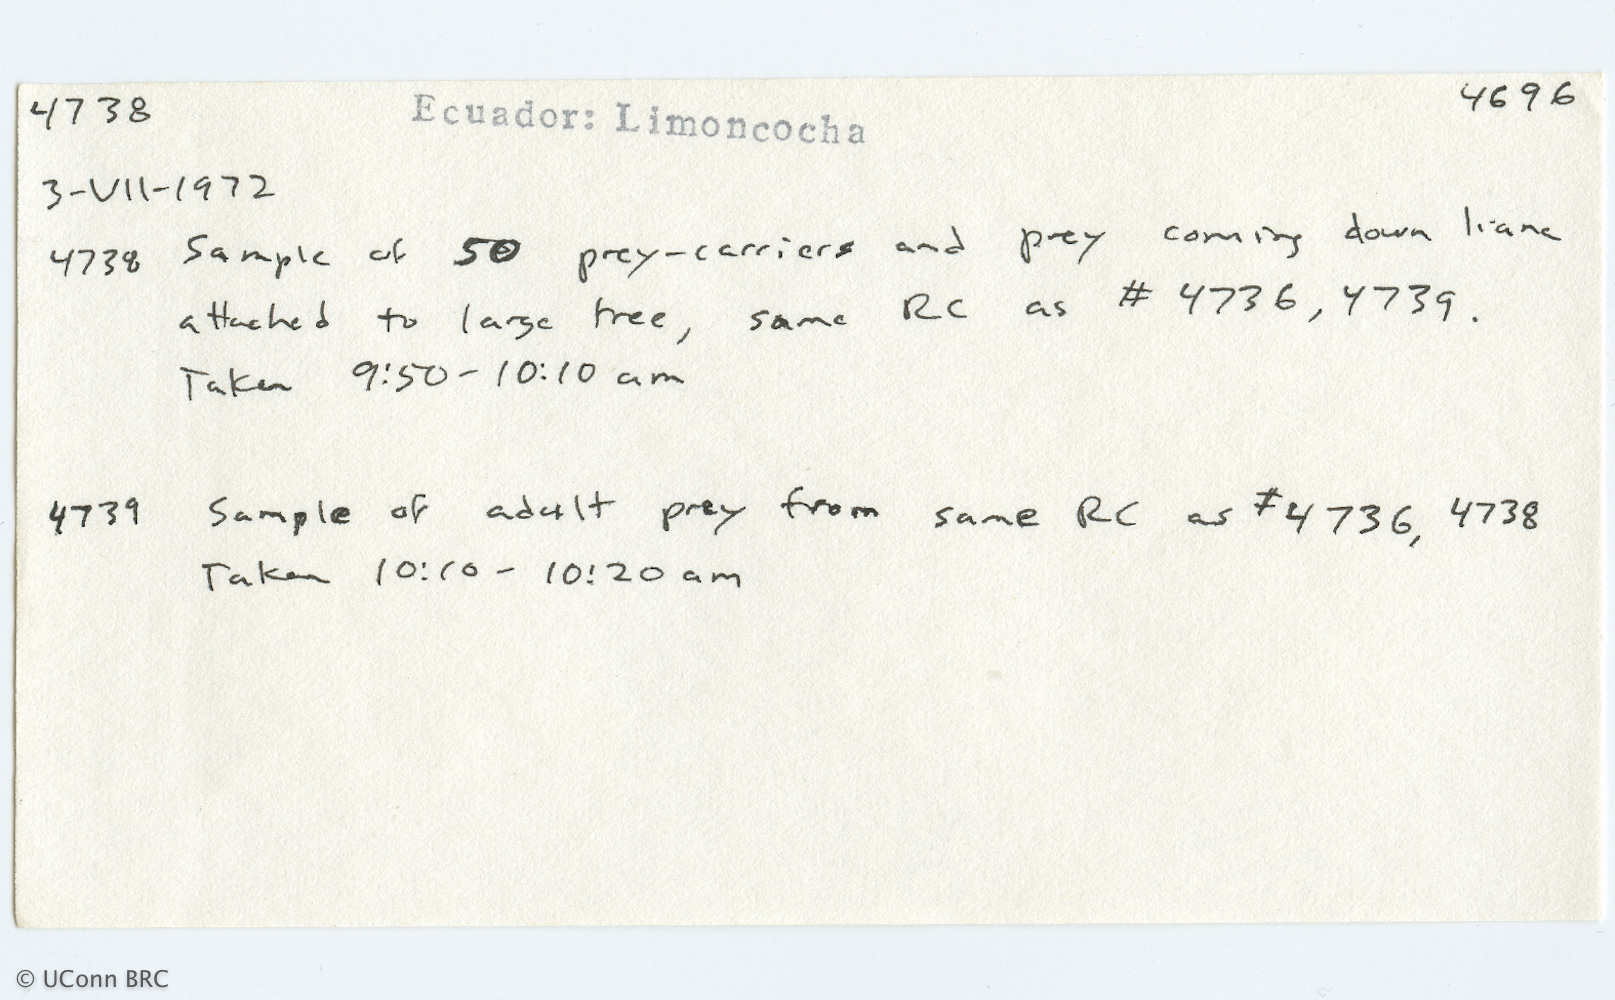 4738 Ecuador: Limoncocha 4696
3-VII-1972
4738 Sample of 50 prey-carriers and prey coming down liane
attached to large tree, same RC as # 4736, 4739.
Taken 9:50-10:10 am
4739 Sample of adult prey from same RC as #4736, 4738
Taken 10:10 - 10:20 am
© UConn BRC